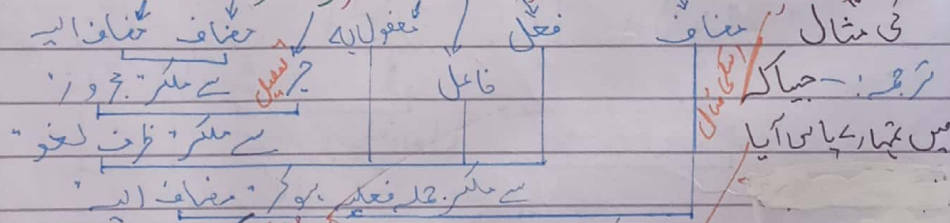 کی مثال / مضاف فعل / مفعول بہ / مضاف مضاف الیہ
ترجمہ:- جیسا کہ اسکی مثال فاعل جر سے ملکر مجرور
میں تمہارے پاس آیا سے ملکر ظرف لغو
سے ملکر جملہ فعلیہ ہوکر مضاف الیہ